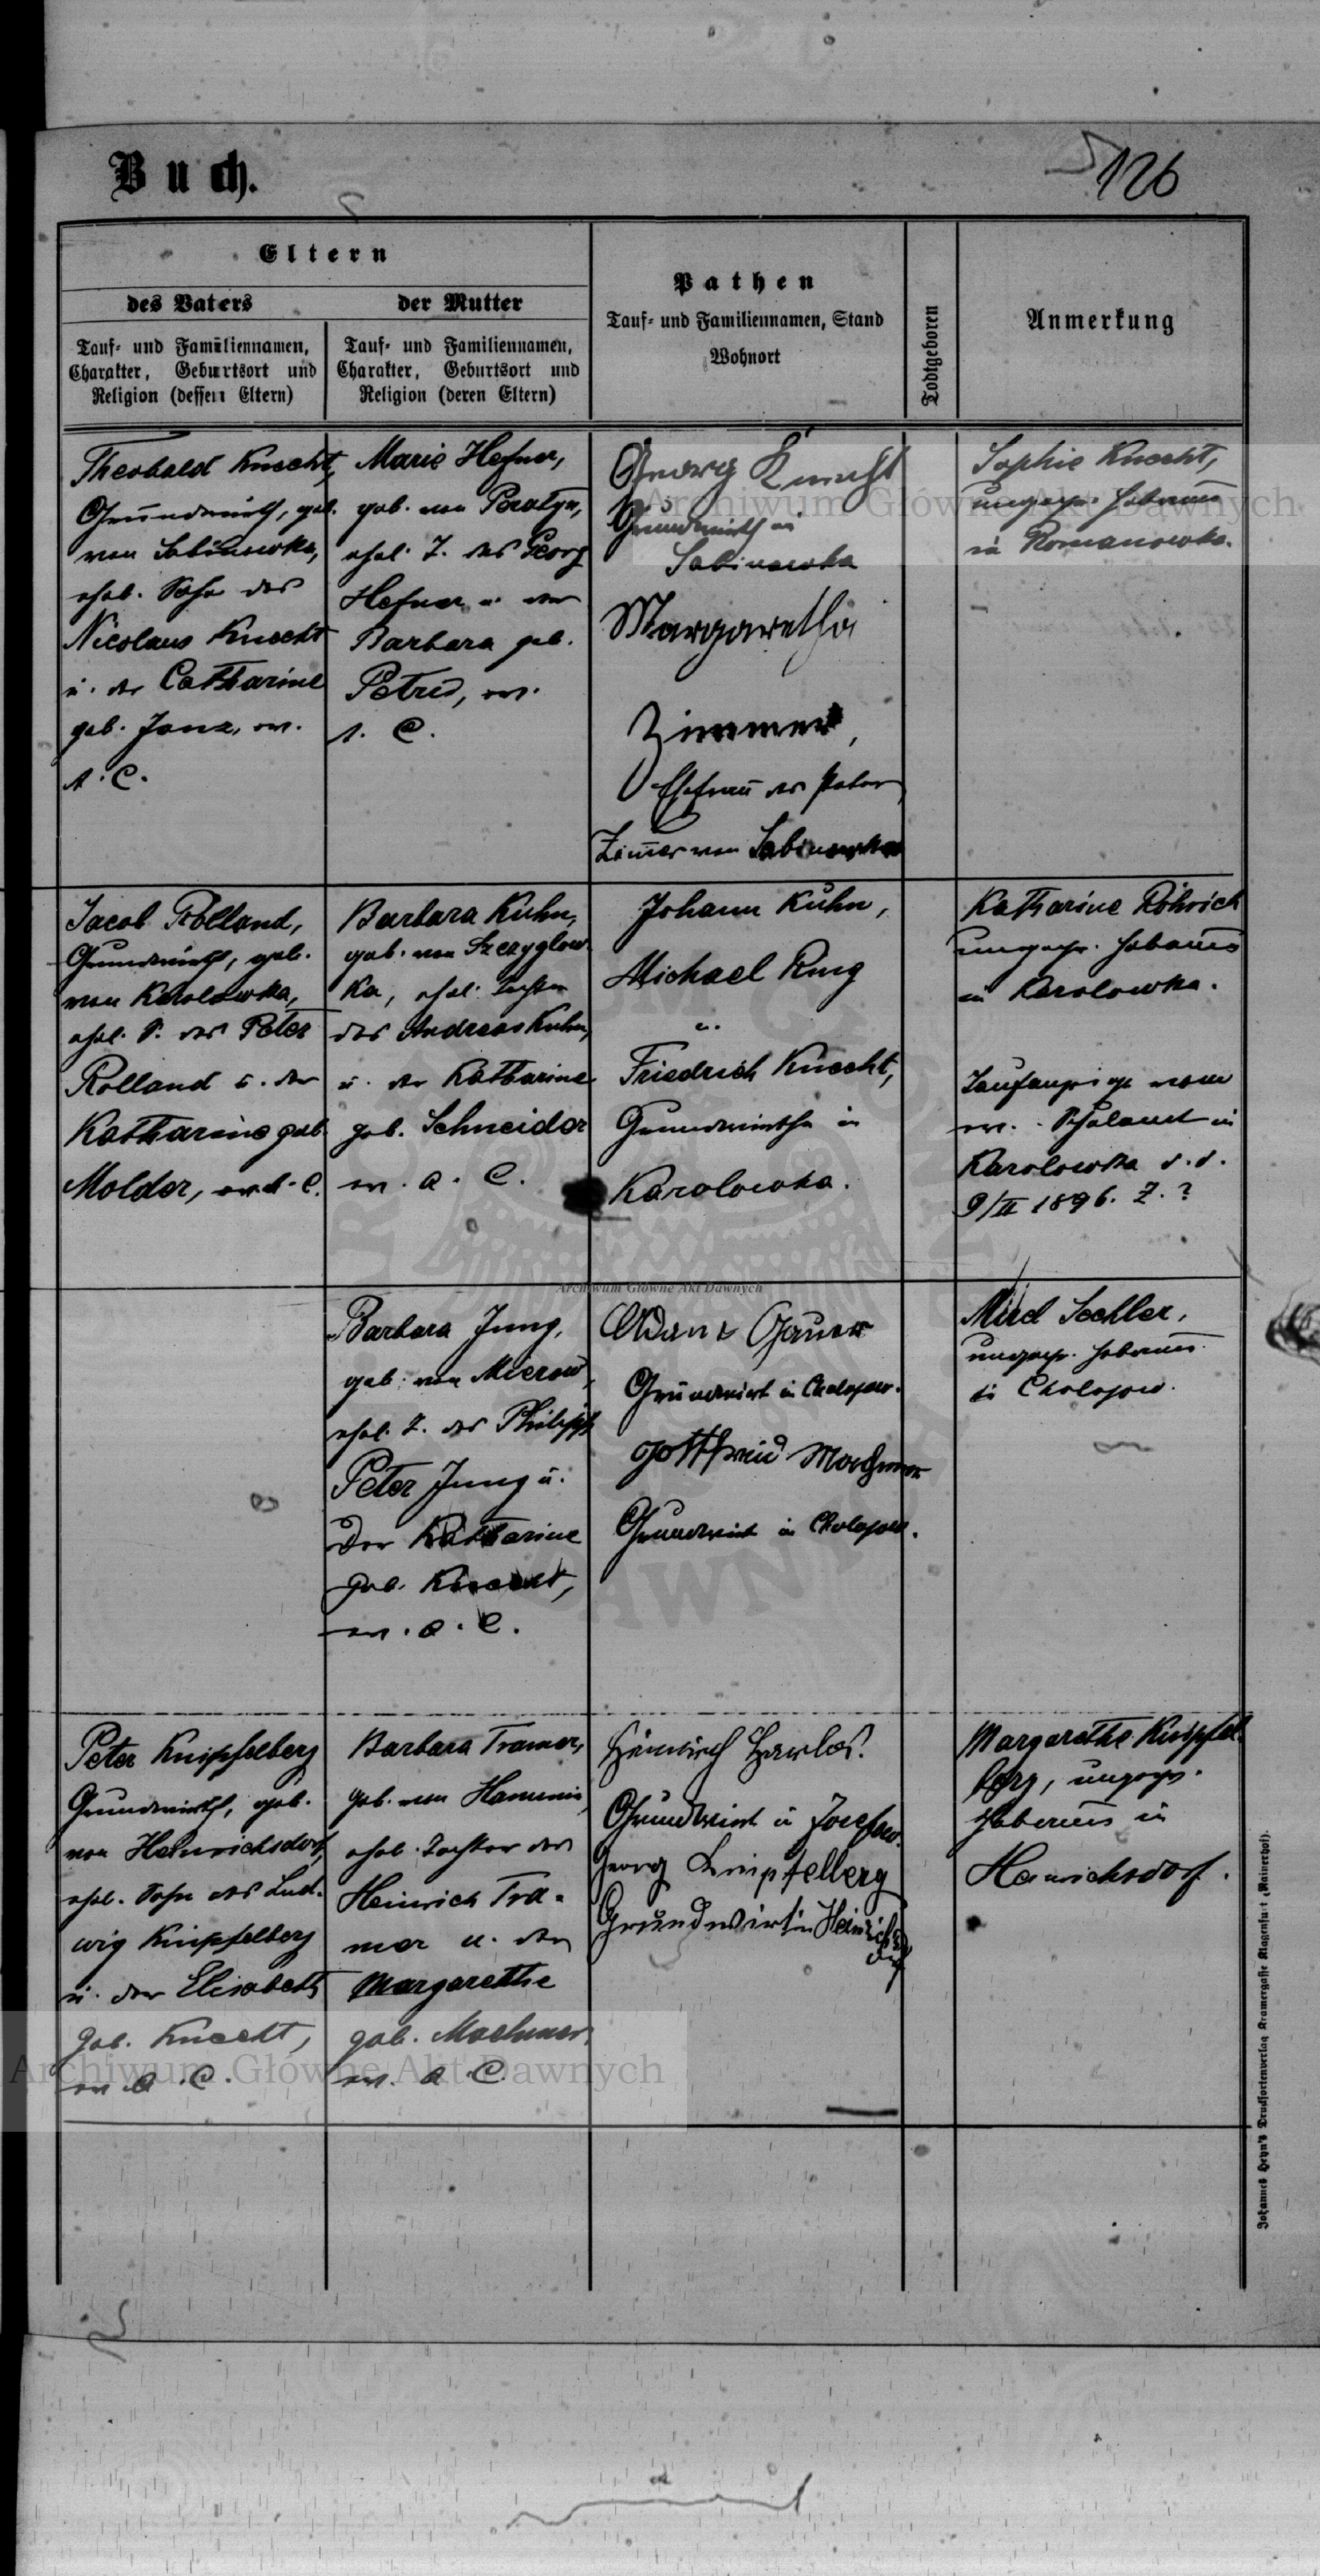 Buch.
126
Eltern
des Vaters
der Mutter
Tauf- und Familiennamen,
Charakter, Geburtsort und
Religion (dessen Eltern)
Tauf- und Familiennamen,
Charakter, Geburtsort und
Religion (deren Eltern)
Pathen
Tauf- und Familiennamen, Stand
Wohnort
Todtgeboren
Anmerkung
Theobald Knecht,
Grundwirth, geb.
von Sabinowka,
ehel. Sohn des
Nicolaus Knecht
u. der Catharine
geb. Janz, ev.
A. C.
Marie Hefner,
geb. von Poratyn,
ehel. T. des Georg
Hefner u. der
Barbara geb.
Petri, ev.
A. C.
Georg Knecht
Grundwirth in
Sabinowka
Margaretha
Zimmer,
Ehefrau des Peter
Zimer von Sabinowka
Sophie Knecht,
ungepr. Hebamme
in Romanowka.
Jacob Rolland,
Grundwirth, geb.
von Karolowka,
ehel. S. des Peter
Rolland u. der
Katharine geb.
Molder, ev. A. C.
Barbara Kuhn,
geb. von Strzyglow-
ka, ehel. Tochter
des Andreas Kuhn,
u. der Katharine
geb. Schneider
ev. A. C.
Johann Kuhn,
Michael Rung
u.
Friedrich Knecht,
Grundwirthe in
Karolowka.
Katharine Röhrich
ungepr. Hebamme
in Karolowka.
Taufanzeige vom
ev. Schulamt in
Karolowka d. d.
9/II 1896. Z. ?
Barbara Jung,
geb. von Mierow,
ehel. T. des Philipp
Peter Jung u.
der Katharine
geb. Knecht,
ev. A. C.
Adam Gauer
Grundwirt in Cholojow.
Gottfried Machmer
Grundwirt in Cholojow.
Sechler,
ungepr. Hebamme
in Cholojow.
Peter Knipfelberg
Grundwirth, geb.
von Heinrichsdorf,
ehel. Sohn des Lud-
wig Knipfelberg
u. der Elisabeth
geb. Knecht,
ev. A. C.
Barbara Tramer,
geb. von Hanunin,
ehel. Tochter des
Heinrich Tra-
mer u. der
Margarethe
geb. Machmer,
ev. A. C.
Heinrich Harlos.
Grundwirt in Josefow.
Georg Knipfelberg
Grundwirt in Heinrichs
dorf
Margarethe Knipfel-
berg, ungepr.
Hebamme in
Heinrichsdorf.
Johannes Heyn's Drucksortenverlag Kramergasse Klagenfurt (Mainerhof).
Archiwum Główne Akt Dawnych
Archiwum Główne Akt Dawnych
Archiwum Główne Akt Dawnych